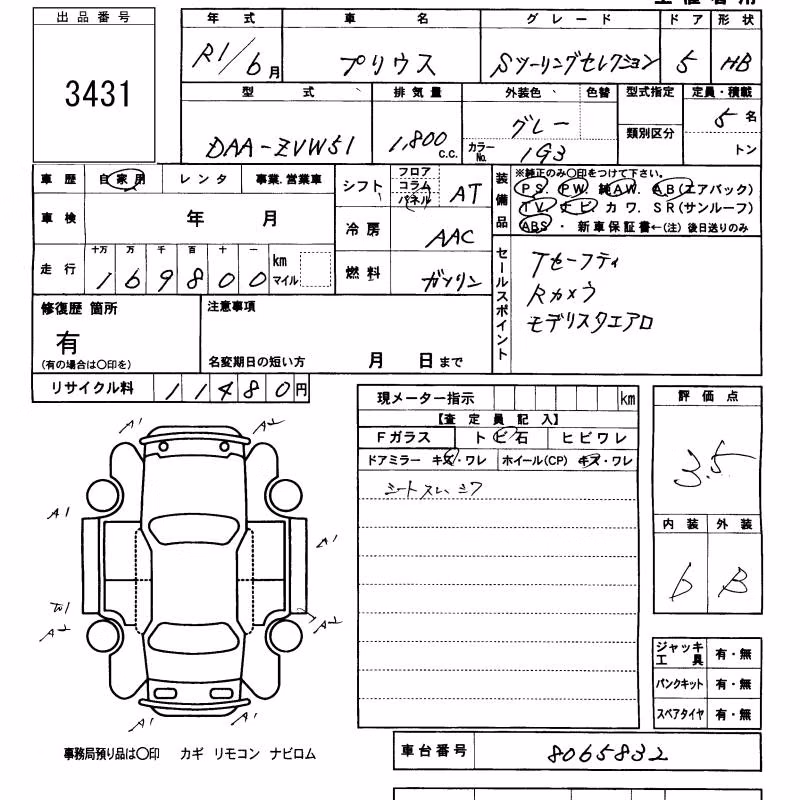 出品番号
3431
年式 車名 グレード ドア 形状
R1/6月 プリウス Sツーリングセレクション 5 HB
型式 排気量 外装色 色替 型式指定 定員・積載
DAA-ZVW51 1,800c.c. グレー 5名
カラーNo. 1G3 類別区分 トン
車歴 自家用 レンタ 事業.営業車
車検 年 月
走行 十万 万 千 百 十 一
169800 km マイル
シフト フロア コラム パネル AT
冷房 AAC
燃料 ガソリン
装備品 ※純正のみ〇印をつけて下さい。
PS. PW. 純AW. AB(エアバック)
TV. ナビ. カワ. SR(サンルーフ)
ABS・新車保証書←(注)後日送りのみ
セールスポイント
Tセーフティ
Rカメラ
モデリスタエアロ
修復歴 箇所
有
(有の場合は〇印を)
注意事項
名変期日の短い方 月 日まで
リサイクル料 11480円
現メーター指示 km
【査定員記入】
Fガラス トビ石 ヒビワレ
ドアミラー キズ・ワレ ホイール(CP) キズ・ワレ
シートスレ、シワ
評価点
3.5
内装 外装
b B
A1 A2
A1
A1
W1
A2 A2
A1 A1
ジャッキ工具 有・無
パンクキット 有・無
スペアタイヤ 有・無
事務局預り品は〇印 カギ リモコン ナビロム
車台番号 8065832